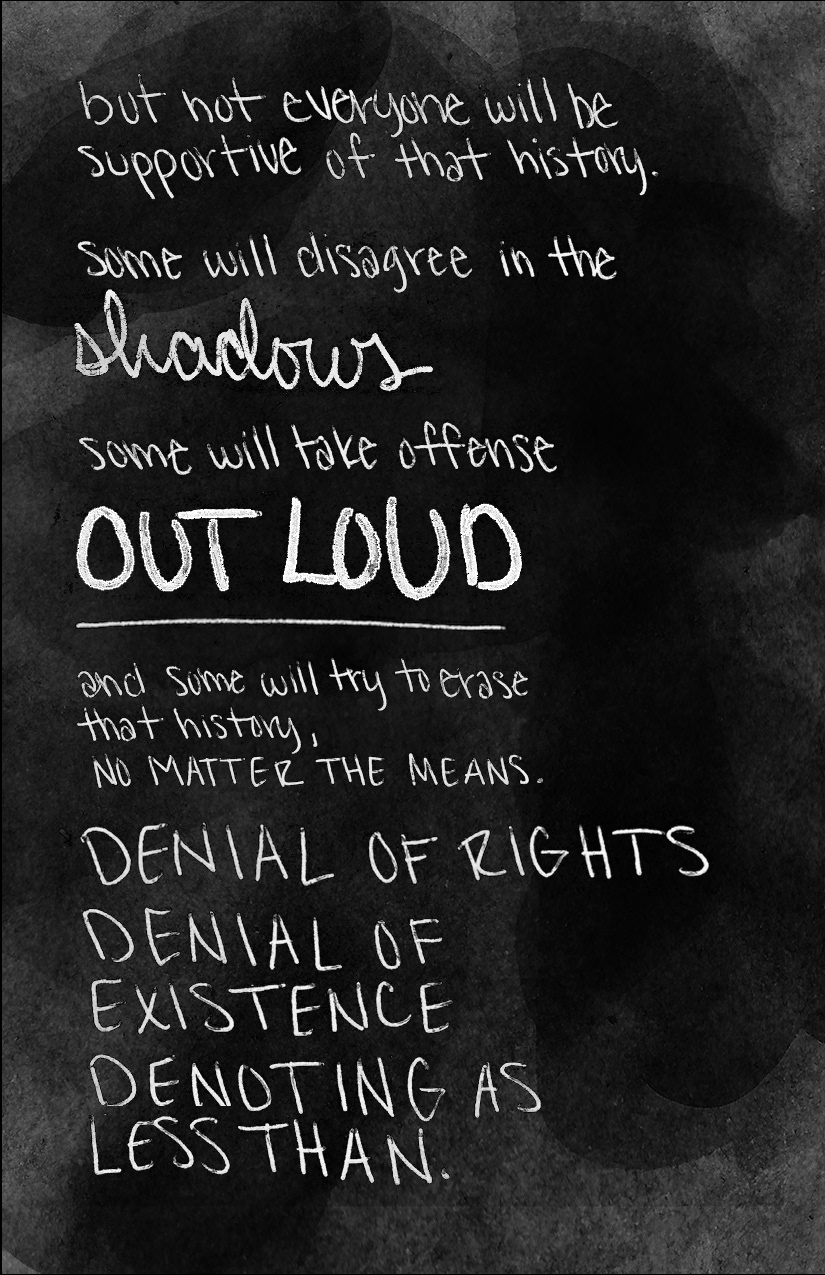 but not everyone will be
supportive of that history.
some will disagree in the
shadows
some will take offense
OUT LOUD
and some will try to erase
that history,
NO MATTER THE MEANS.
DENIAL OF RIGHTS
DENIAL OF
EXISTENCE
DENOTING AS
LESS THAN.